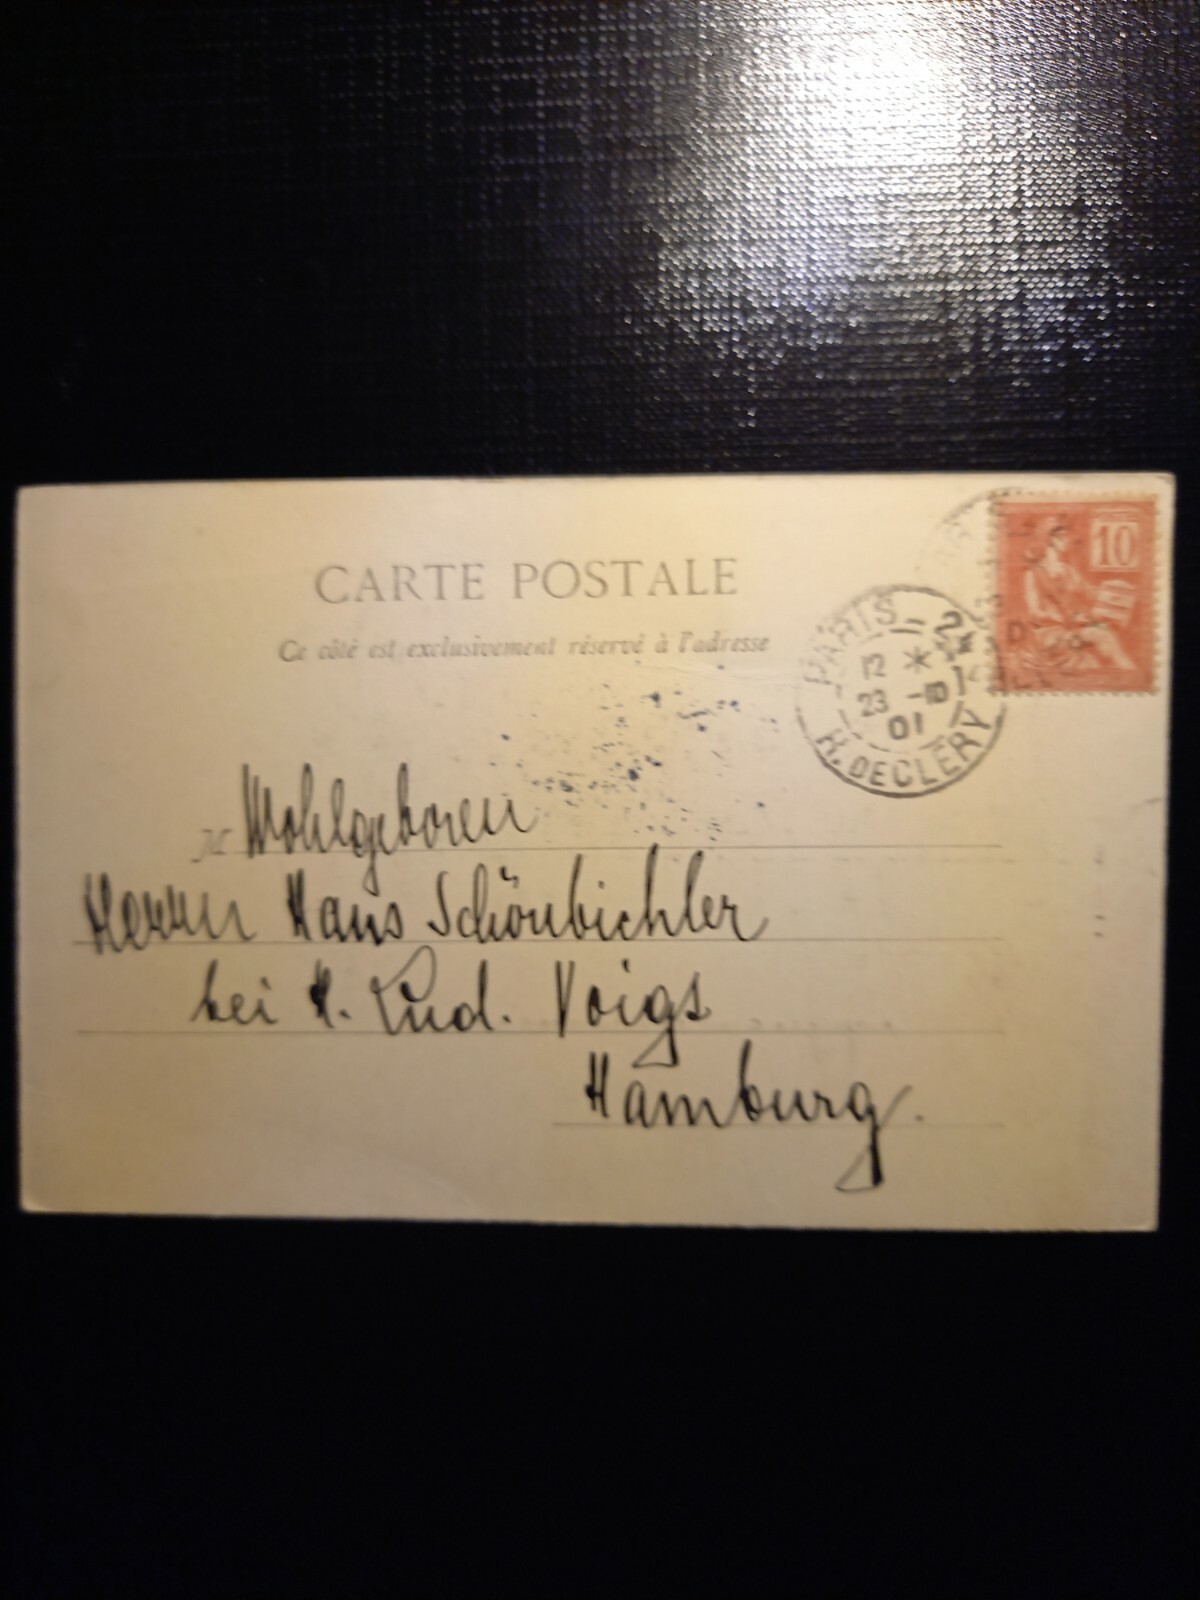 CARTE POSTALE
Ce côté est exclusivement réservé à l'adresse
10
PARIS_2
12 *
23 -10
01
R. DE CLERY
M
Wohlgeboren
Herrn Hans Schönbichler
bei H. Lud. Voigs
Hamburg.